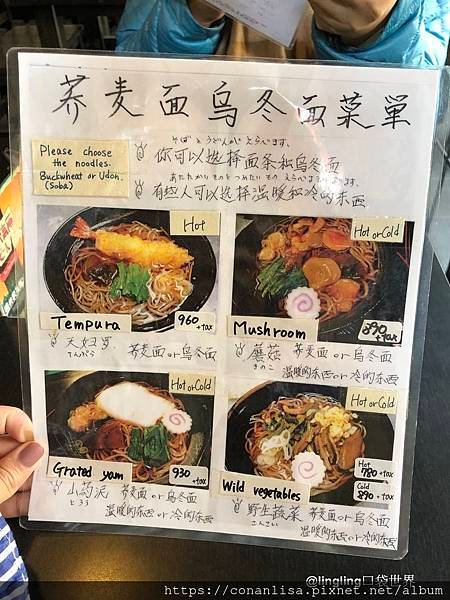 荞麦面乌冬面菜単
Please choose
the noodles.
Buckwheat or Udon.
(Soba)
そばとうどんがえらべます。
你可以选择面条和乌冬面
あたたかいものとつめたいものえらべます
有些人可以选择温暖和冷的东西
Hot
Tempura
960
+tax
天妇罗 荞麦面or乌冬面
てんぷら
Hot or Cold
Mushroom
890
+tax
蘑菇 荞麦面or乌冬面
きのこ
温暖的东西or冷的东西
Hot or Cold
Grated yam
930
+tax
山药泥 荞麦面or乌冬面
とろろ
温暖的东西or冷的东西
Hot or Cold
Wild vegetables
Hot
780+tax
Cold
890+tax
野生蔬菜 荞麦面or乌冬面
さんさい
温暖的东西or冷的东西
@lingling口袋世界
https://conanlisa.pixnet.net/album